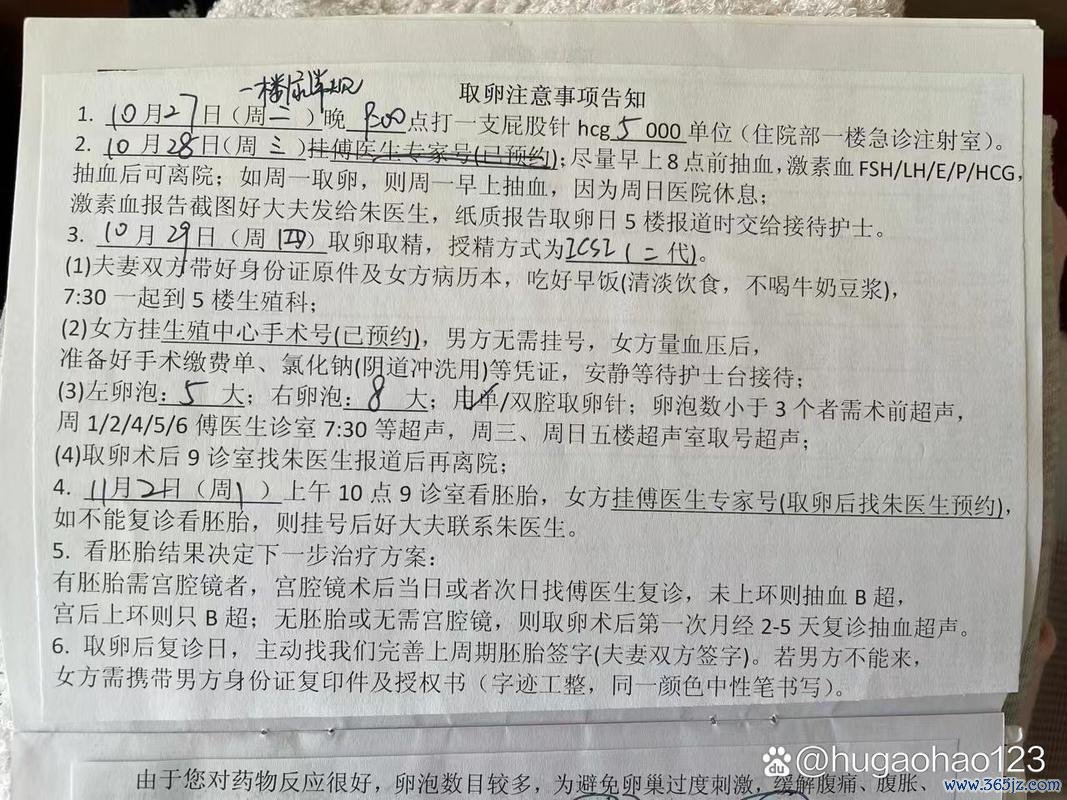 取卵注意事项告知
一楼尿常规
1. 10月27日（周二）晚 点打一支屁股针 hcg 5 000 单位（住院部一楼急诊注射室）。
2. 10月28日（周三）挂傅医生专家号(已预约)；尽量早上8点前抽血，激素血 FSH/LH/E/P/HCG，
抽血后可离院；如周一取卵，则周一早上抽血，因为周日医院休息；
激素血报告截图好大夫发给朱医生，纸质报告取卵日5楼报道时交给接待护士。
3. 10月29日（周四）取卵取精，授精方式为ICSI（二代）。
(1)夫妻双方带好身份证原件及女方病历本，吃好早饭(清淡饮食，不喝牛奶豆浆)，
7:30 一起到5楼生殖科；
(2)女方挂生殖中心手术号(已预约)，男方无需挂号，女方量血压后，
准备好手术缴费单、氯化钠(阴道冲洗用)等凭证，安静等待护士台接待；
(3)左卵泡：5 大；右卵泡：8 大；用单/双腔取卵针；卵泡数小于3个者需术前超声，
周 1/2/4/5/6 傅医生诊室 7:30 等超声，周三、周日五楼超声室取号超声；
(4)取卵术后9诊室找朱医生报道后再离院；
4. 11月2日（周1）上午10点9诊室看胚胎，女方挂傅医生专家号(取卵后找朱医生预约)，
如不能复诊看胚胎，则挂号后好大夫联系朱医生。
5. 看胚胎结果决定下一步治疗方案：
有胚胎需宫腔镜者，宫腔镜术后当日或者次日找傅医生复诊，未上环则抽血B超，
宫后上环则只B超；无胚胎或无需宫腔镜，则取卵术后第一次月经2-5天复诊抽血超声。
6. 取卵后复诊日，主动找我们完善上周期胚胎签字(夫妻双方签字)。若男方不能来，
女方需携带男方身份证复印件及授权书（字迹工整，同一颜色中性笔书写)。
由于您对药物反应很好，卵泡数目较多，为避免卵巢过度刺激，缓解腹痛、腹胀、
Bai du @hugaohao123
www.365jz.com